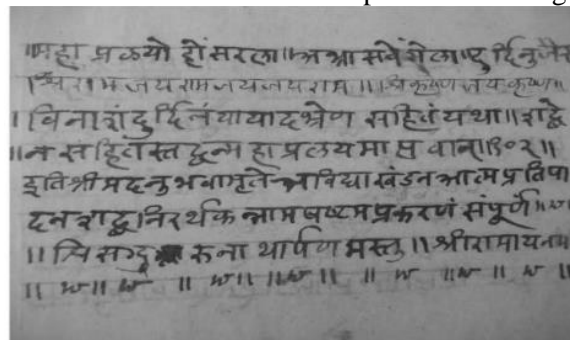 ॥महा प्रळयो हों सरला॥ अभ्र आसवें गेला॥ दुर्दिनु जैसा
श्रीराम जयराम जयजयराम॥ ॥श्रीकृष्ण जय कृष्ण॥
।विनाशं दुर्दिनं यायादभ्रेण सहितं यथा॥ शब्दे
॥न सहितस्तद्वन्महाप्रलयमाप्तवान्॥१०२॥
इतिश्रीमदनुभवामृते अविद्याखंडन आत्मप्रतिपा
दन शब्दनिरर्थक नाम षष्टमप्रकरणं संपूर्ण
॥श्रीसद्गुरुनाथार्पणमस्तु॥ श्रीरामायनम